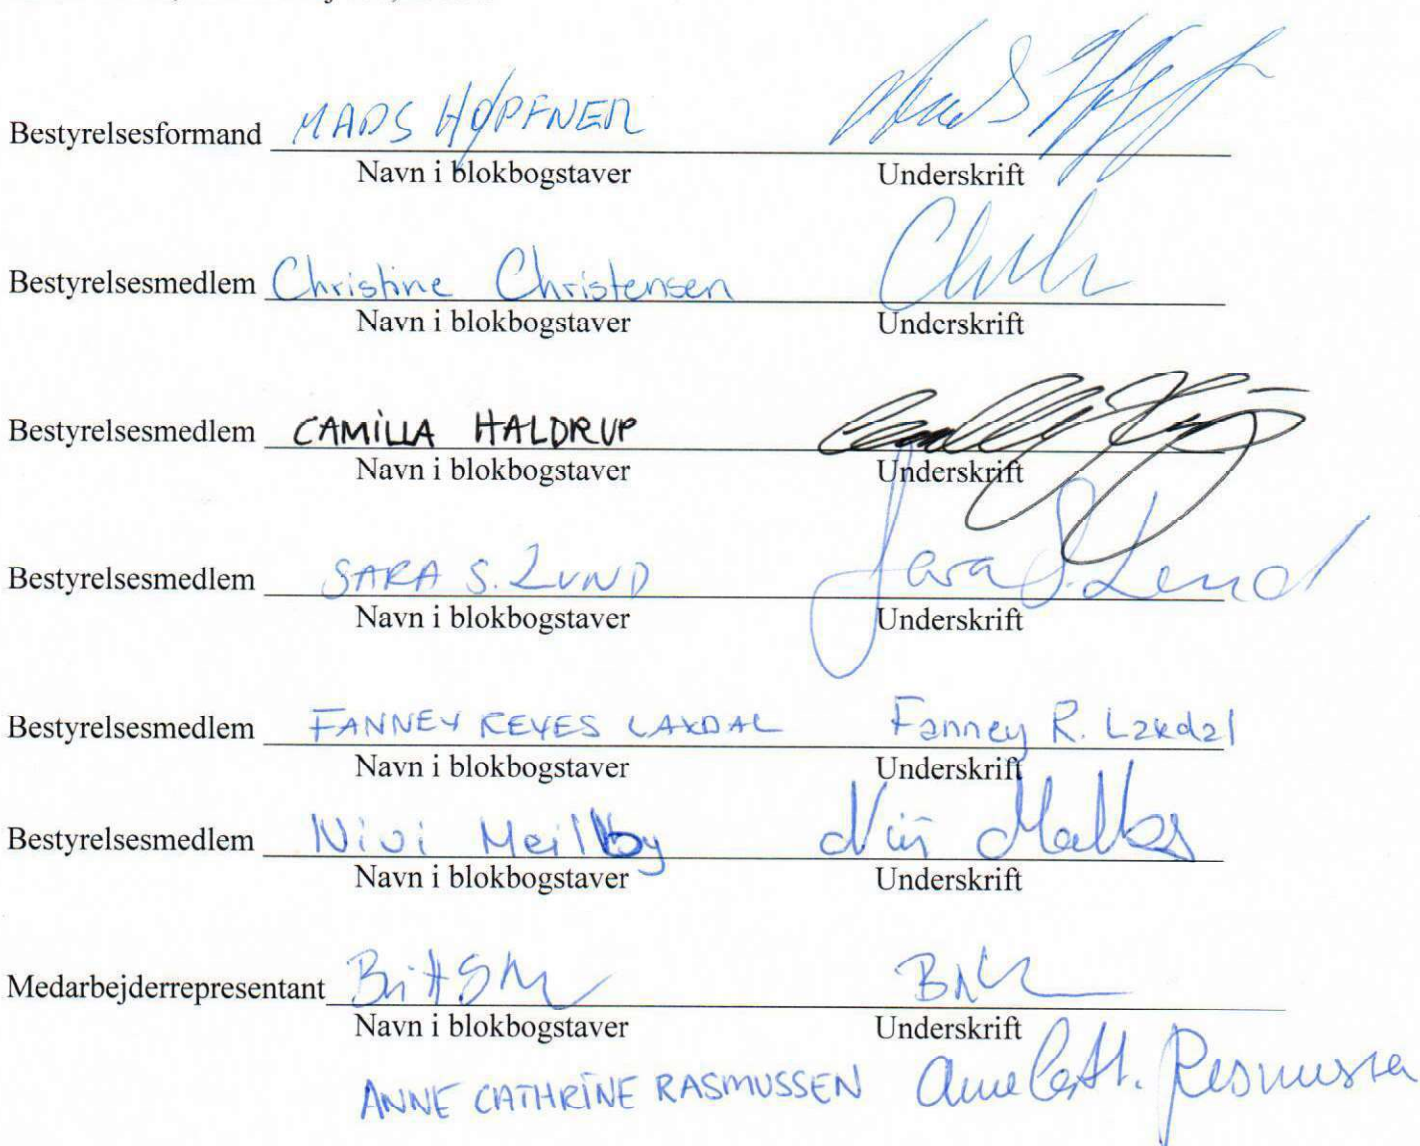 Bestyrelsesformand MADS HØPFNER
Navn i blokbogstaver Underskrift
Bestyrelsesmedlem Christine Christensen
Navn i blokbogstaver Underskrift
Bestyrelsesmedlem CAMILLA HALDRUP
Navn i blokbogstaver Underskrift
Bestyrelsesmedlem SARA S. LUND Sara S. Lund
Navn i blokbogstaver Underskrift
Bestyrelsesmedlem FANNEY REYES LAXDAL Fanney R. Laxdal
Navn i blokbogstaver Underskrift
Bestyrelsesmedlem Nivi Meilby
Navn i blokbogstaver Underskrift
Medarbejderrepresentant Britt
Navn i blokbogstaver Underskrift
ANNE CATHRINE RASMUSSEN Anne Cath. Rasmussen